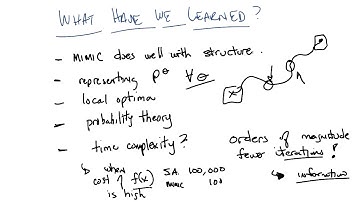 WHAT HAVE WE LEARNED?
- MIMIC does well with structure.
- representing P^θ ∀θ
- local optima
- probability theory
- time complexity?
orders of magnitude
fewer iterations!
↳ when
cost of f(x)
is high
SA 100,000
MIMIC 100
↳ information
x